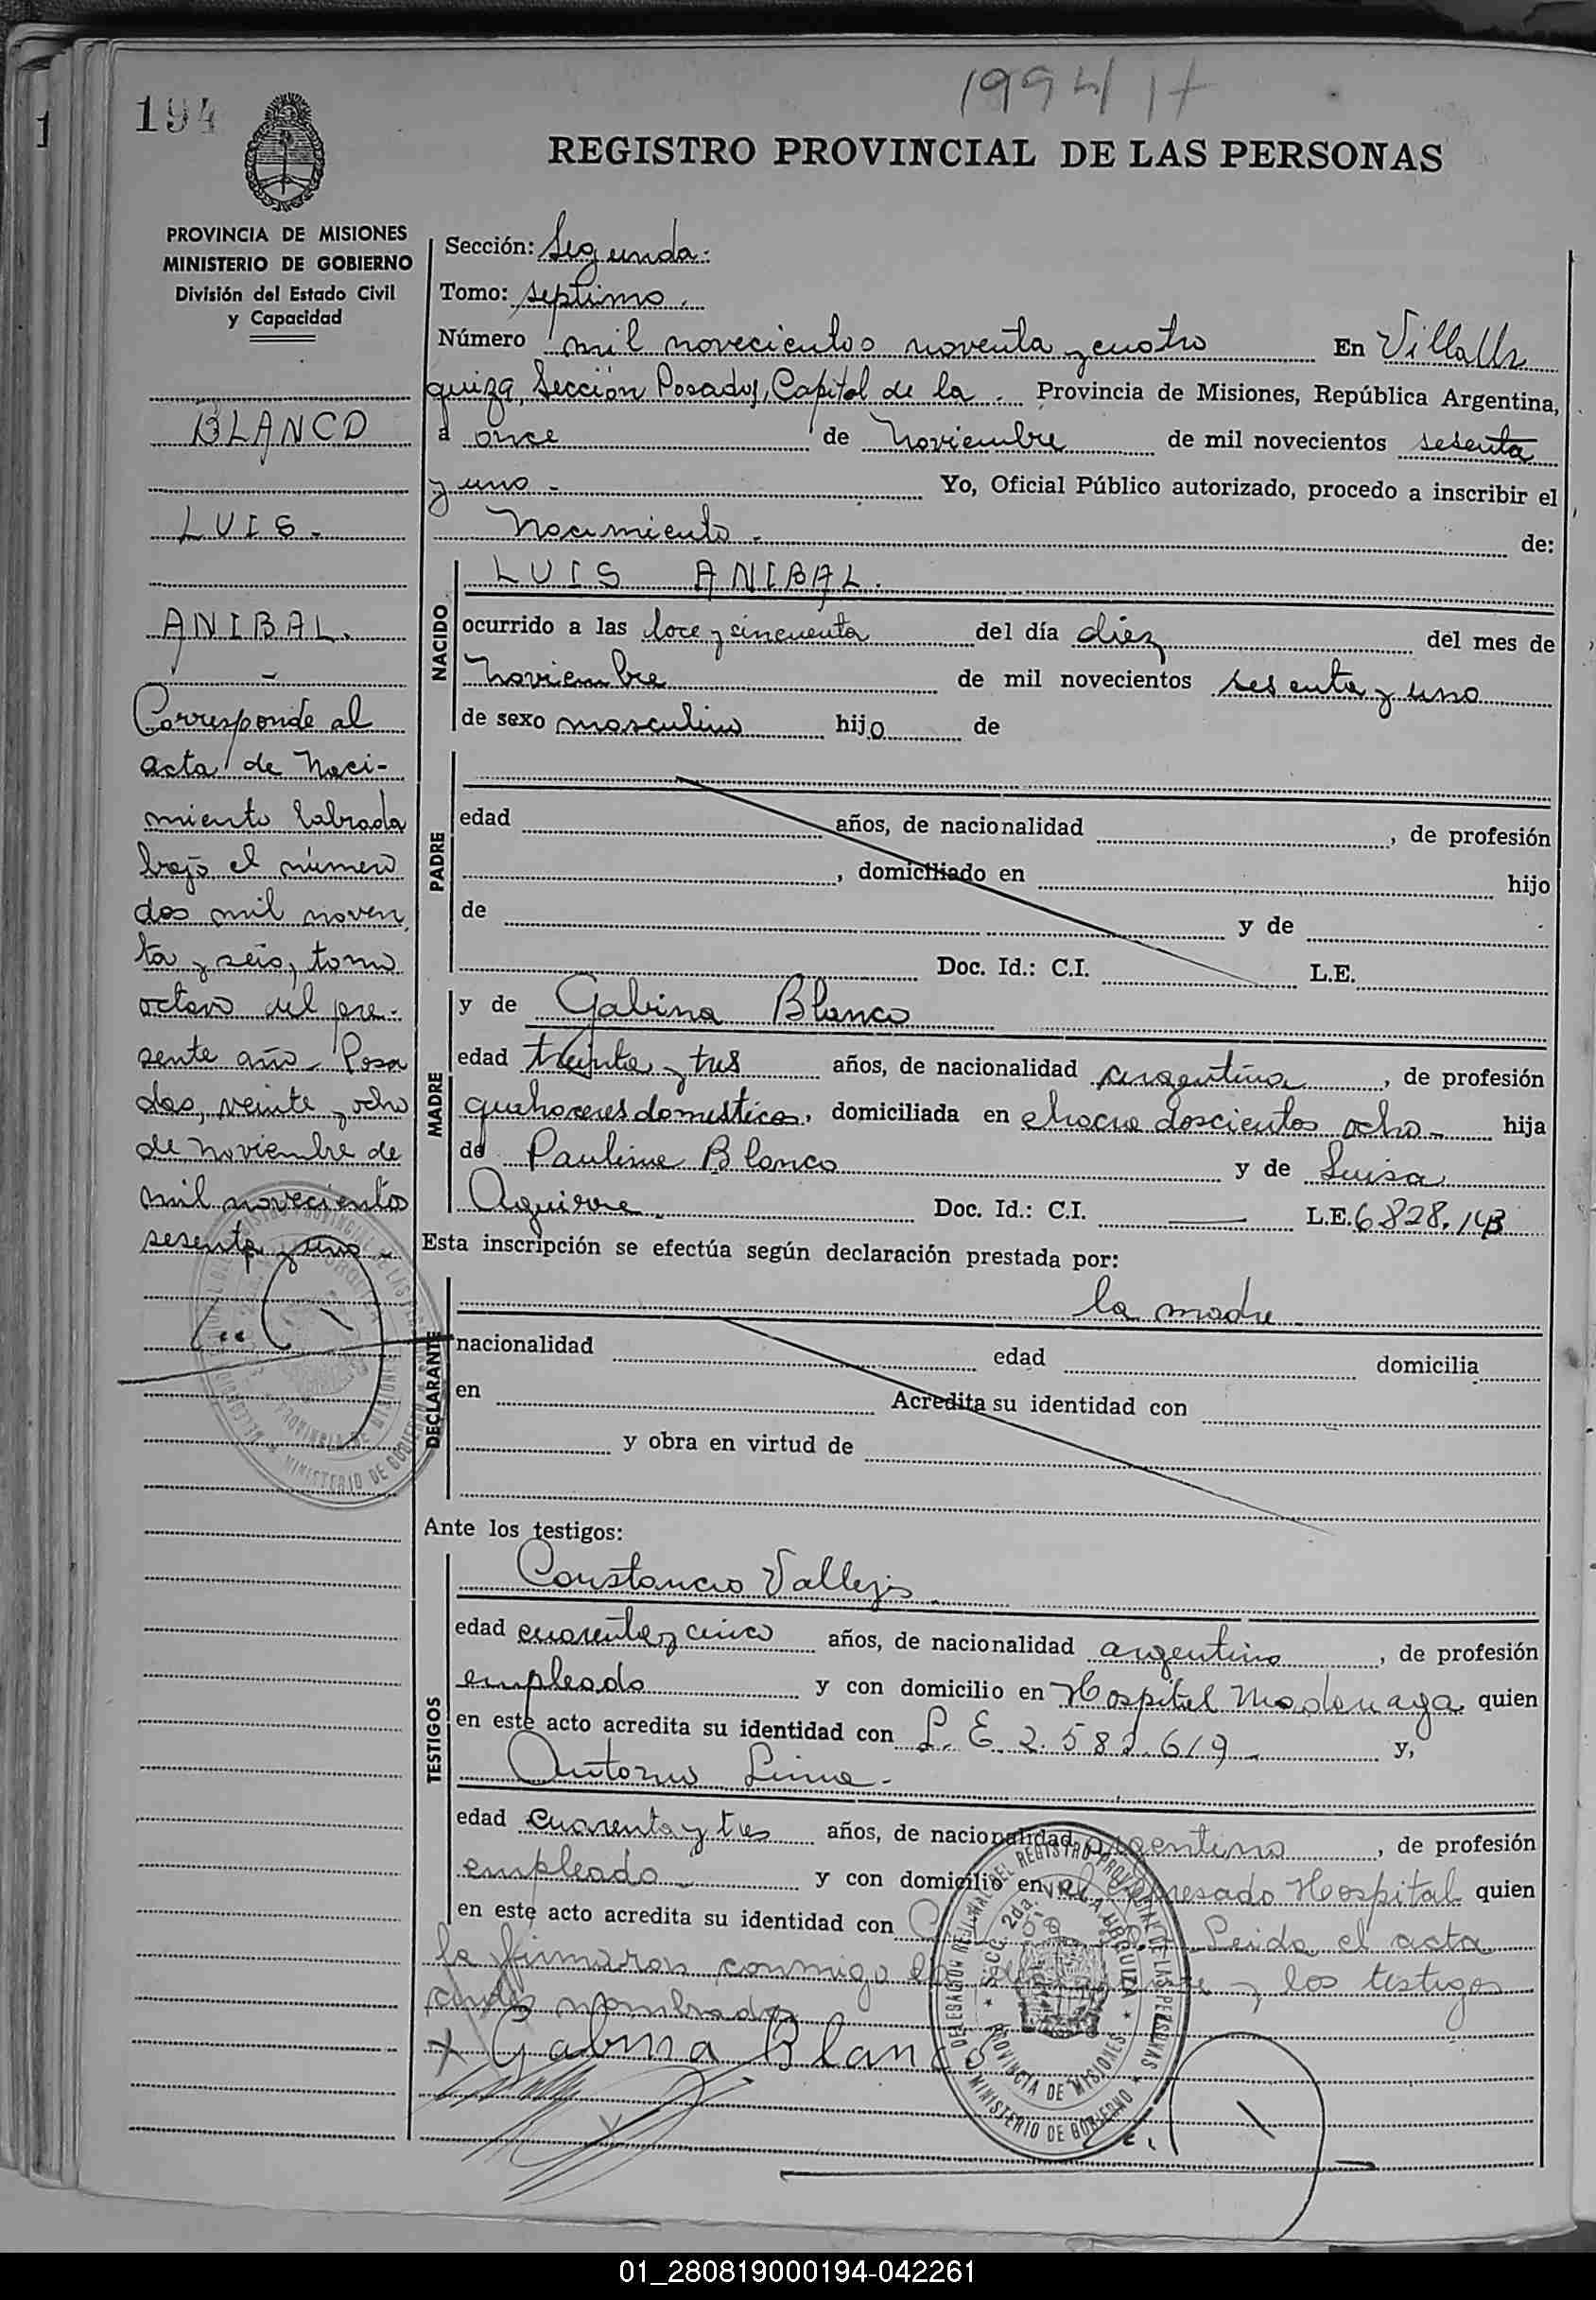 1994/17
194
REGISTRO PROVINCIAL DE LAS PERSONAS
PROVINCIA DE MISIONES
MINISTERIO DE GOBIERNO
División del Estado Civil
y Capacidad
BLANCO
LUIS.-
ANIBAL.
-
Corresponde al
acta de Naci-
miento labrada
bajo el número
dos mil noven
ta y seis, tomo
octavo del pre-
sente año. Posa
das, veinte y ocho
de noviembre de
mil novecientos
sesenta y uno -
Sección: Segunda.
Tomo: septimo.
Número mil novecientos noventa y cuatro En Villa Ur
quiza, Sección Posadas, Capital de la Provincia de Misiones, República Argentina,
a once de Noviembre de mil novecientos sesenta
y uno - Yo, Oficial Público autorizado, procedo a inscribir el
Nacimiento - de:
NACIDO
LUIS ANIBAL.
ocurrido a las doce y cincuenta del día diez del mes de
Noviembre de mil novecientos sesenta y uno
de sexo masculino hijo de
PADRE
edad años, de nacionalidad , de profesión
, domiciliado en hijo
de y de
Doc. Id.: C.I. L.E.
MADRE
y de Gabina Blanco
edad treinta y tres años, de nacionalidad argentina, de profesión
quehaceres domesticos, domiciliada en chacra doscientos ocho - hija
de Paulino Blanco y de Luisa
Aguirre - Doc. Id.: C.I. — L.E. 6.828.143
Esta inscripción se efectúa según declaración prestada por:
DECLARANTE
la madre
nacionalidad edad domicilia
en Acredita su identidad con
y obra en virtud de
Ante los testigos:
TESTIGOS
Constancio Vallejos
edad cuarenta y cinco años, de nacionalidad argentino, de profesión
empleado y con domicilio en Hospital Madariaga quien
en este acto acredita su identidad con L. E. 2.582.619 - y,
Antonio Lima -
edad cuarenta y tres años, de nacionalidad argentino, de profesión
empleado - y con domicilio en el expresado Hospital quien
en este acto acredita su identidad con Leida el acta
la firmaron conmigo y los testigos
antes nombrados
x Gabina Blanco
DELEGACION REGIONAL DEL REGISTRO PROVINCIAL DE LAS PERSONAS
SECC. 2da. VILLA URQUIZA
PROVINCIA DE MISIONES
MINISTERIO DE GOBIERNO
01_280819000194-042261